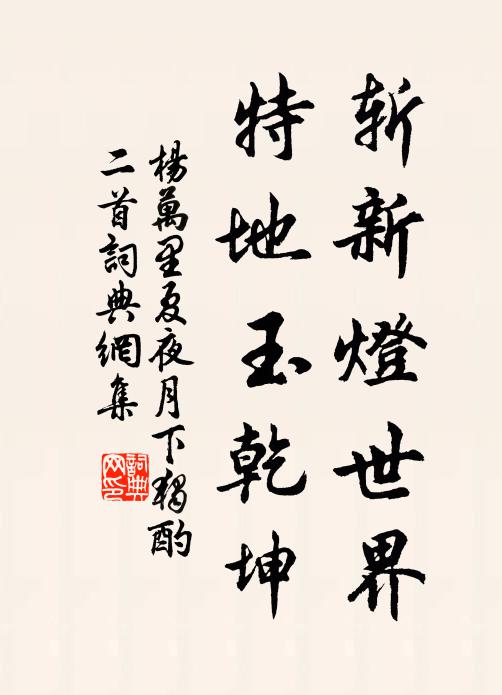 斬新燈世界
特地玉乾坤
楊萬里夏夜月下獨酌
二首詞典網集
詞典
网印